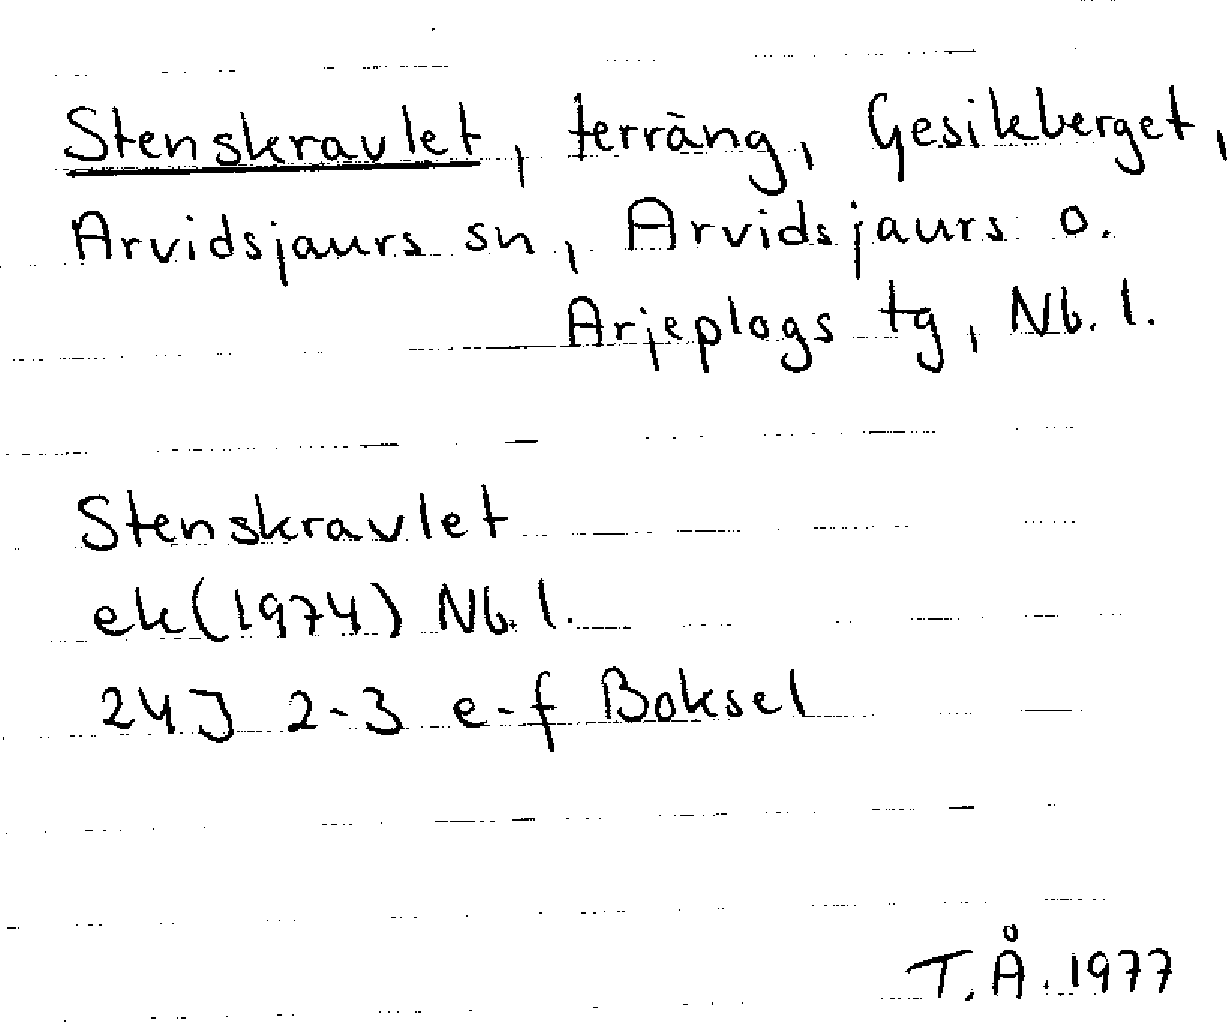 Stenskravlet, terräng, Gesikberget,
Arvidsjaurs sn, Arvidsjaurs o.
Arjeplogs tg, Nb. l.
Stenskravlet
ek (1974) Nb. l.
24J 2-3 e-f Boksel
T.Å. 1977